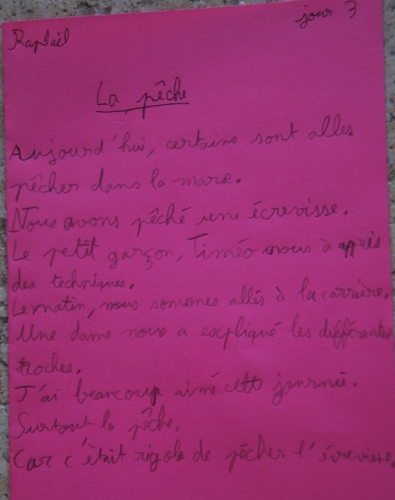 Raphaël
jour 3
La pêche
Aujourd'hui, certains sont allés
pêcher dans la mare.
Nous avons pêché une écrevisse.
Le petit garçon, Timéo nous à appris
des techniques.
Le matin, nous sommes allés à la carrière.
Une dame nous a expliqué les différentes
roches.
J'ai beaucoup aimé cette journée.
Surtout la pêche.
Car c'était rigolo de pêcher l'écrevisse.